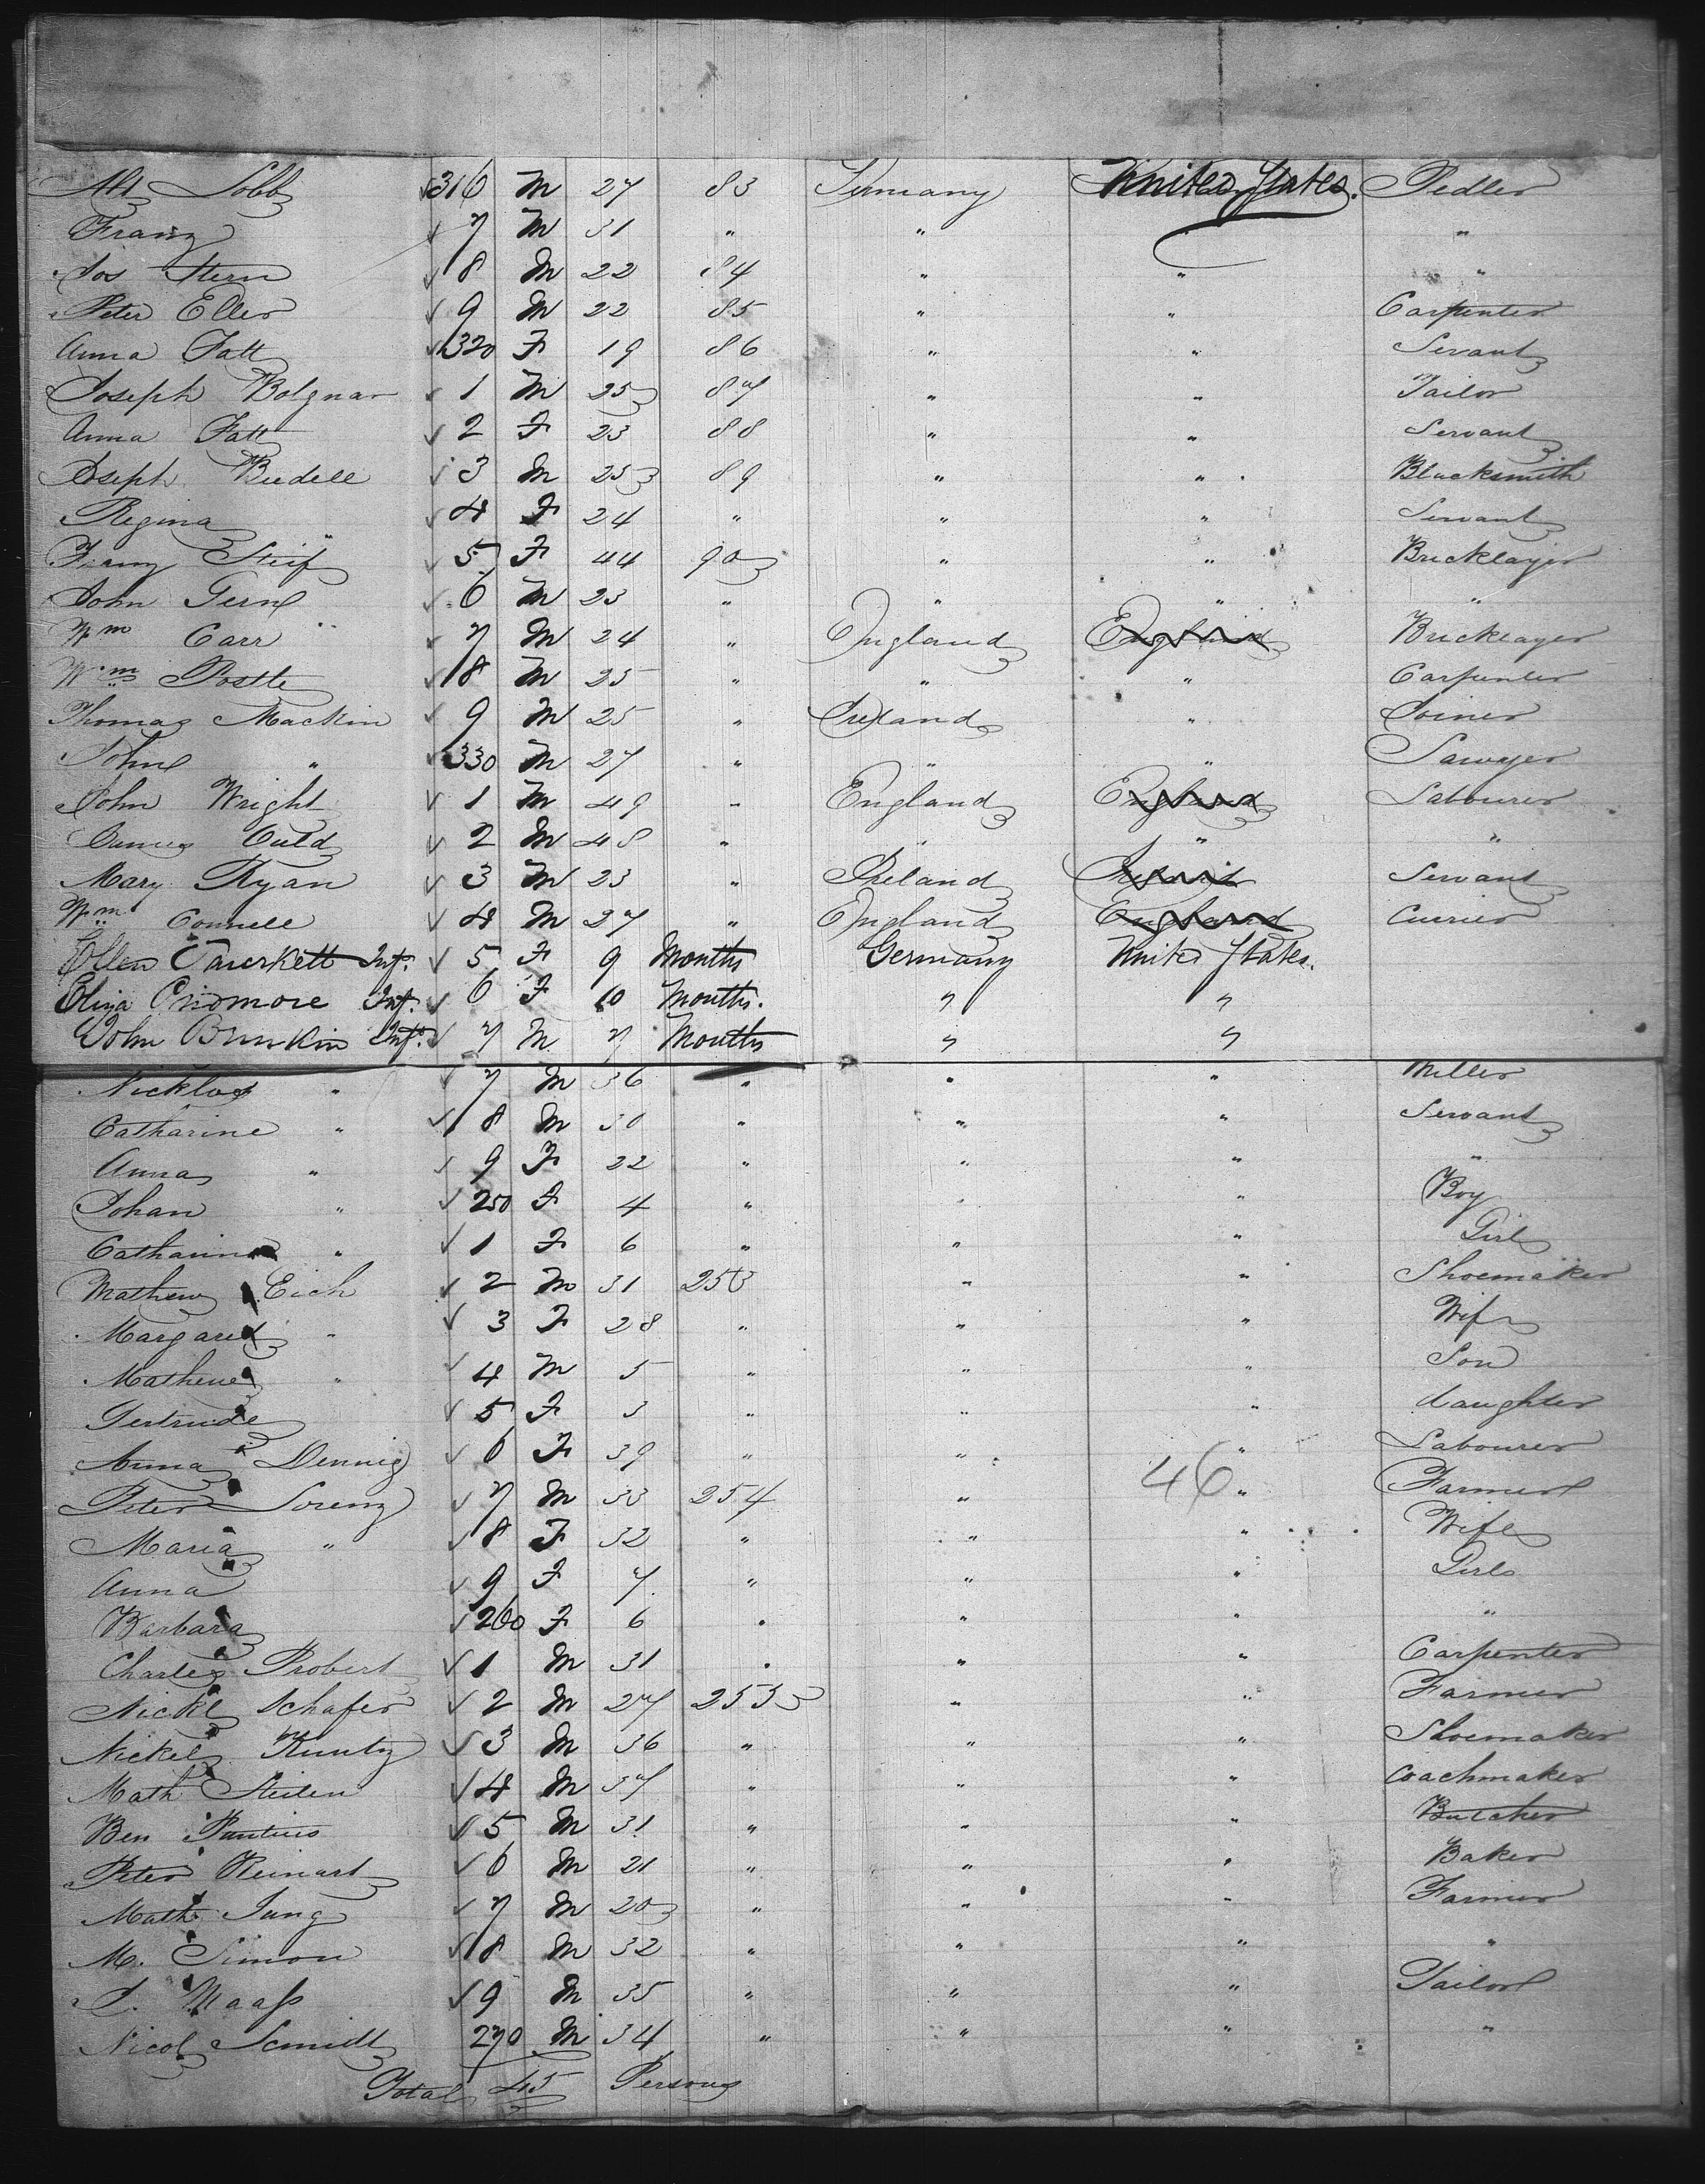 Alt Lobb 316 M 27 83 Germany United States. Pedler
Franz 7 M 31 " " "
Jos Stern 8 M 22 84 " " "
Peter Eller 9 M 22 85 " " Carpenter
Anna Fatt 320 F 19 86 " " Servant
Joseph Bolgnar 1 M 25 87 " " Tailor
Anna Fatt 2 F 23 88 " " Servant
Joseph Budell 3 M 25 89 " " Blacksmith
Regina " 4 F 24 " " " Servant
Franz Steif 5 F 44 90 " " Bricklayer
John Gern 6 M 23 " " " "
Wm Carr 7 M 24 " England England Bricklayer
Wm Postle 8 M 25 " " " Carpenter
Thomas Mackin 9 M 25 " Ireland " Joiner
John " 330 M 27 " " " Sawyer
John Wright 1 M 49 " England England Labourer
James Culd 2 M 48 " " " "
Mary Ryan 3 M 23 " Ireland Ireland Servant
Wm Connell 4 M 27 " England England Currier
Ellen Tauerkett Inf. 5 F 9 Months Germany United States.
Eliza Cridmore Inf. 6 F 10 Months. " "
John Brunkin Inf. 7 M 7 Months " "
Nicklos " 7 M 36 " " " Miller
Catharine " 8 M 30 " " " Servant
Anna " 9 F 22 " " " "
Johan " 250 F 4 " " " Boy
Catharina " 1 F 6 " " " Girl
Mathew Eich 2 M 31 253 " " Shoemaker
Margaret " 3 F 28 " " " Wife
Mathew " 4 M 5 " " " Son
Gertrude 5 F 3 " " " daughter
Anna Dennig 6 F 39 " " " Labourer
Peter Lorenz 7 M 33 254 " 46 " Farmer
Maria " 8 F 32 " " " Wife
Anna 9 F 7 " " " Girl
Barbara 260 F 6 " " " "
Charles Probert 1 M 31 " " " Carpenter
Nickl Schafer 2 M 27 255 " " Farmer
Nickel Kuntz 3 M 36 " " " Shoemaker
Math Steilen 4 M 37 " " " Coachmaker
Ben Pantius 5 M 31 " " " Butcher
Peter Reinart 6 M 21 " " " Baker
Math Jung 7 M 20 " " " Farmer
M. Simon 8 M 32 " " " "
J. Maass 9 M 35 " " " Tailor
Nicol Scmidt 270 M 34 " " " "
Total 45 Persons